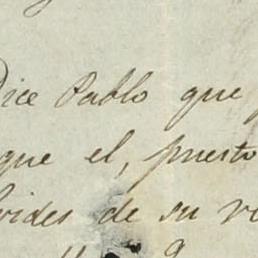 Dice Pablo que
que el, puesto
vides de su